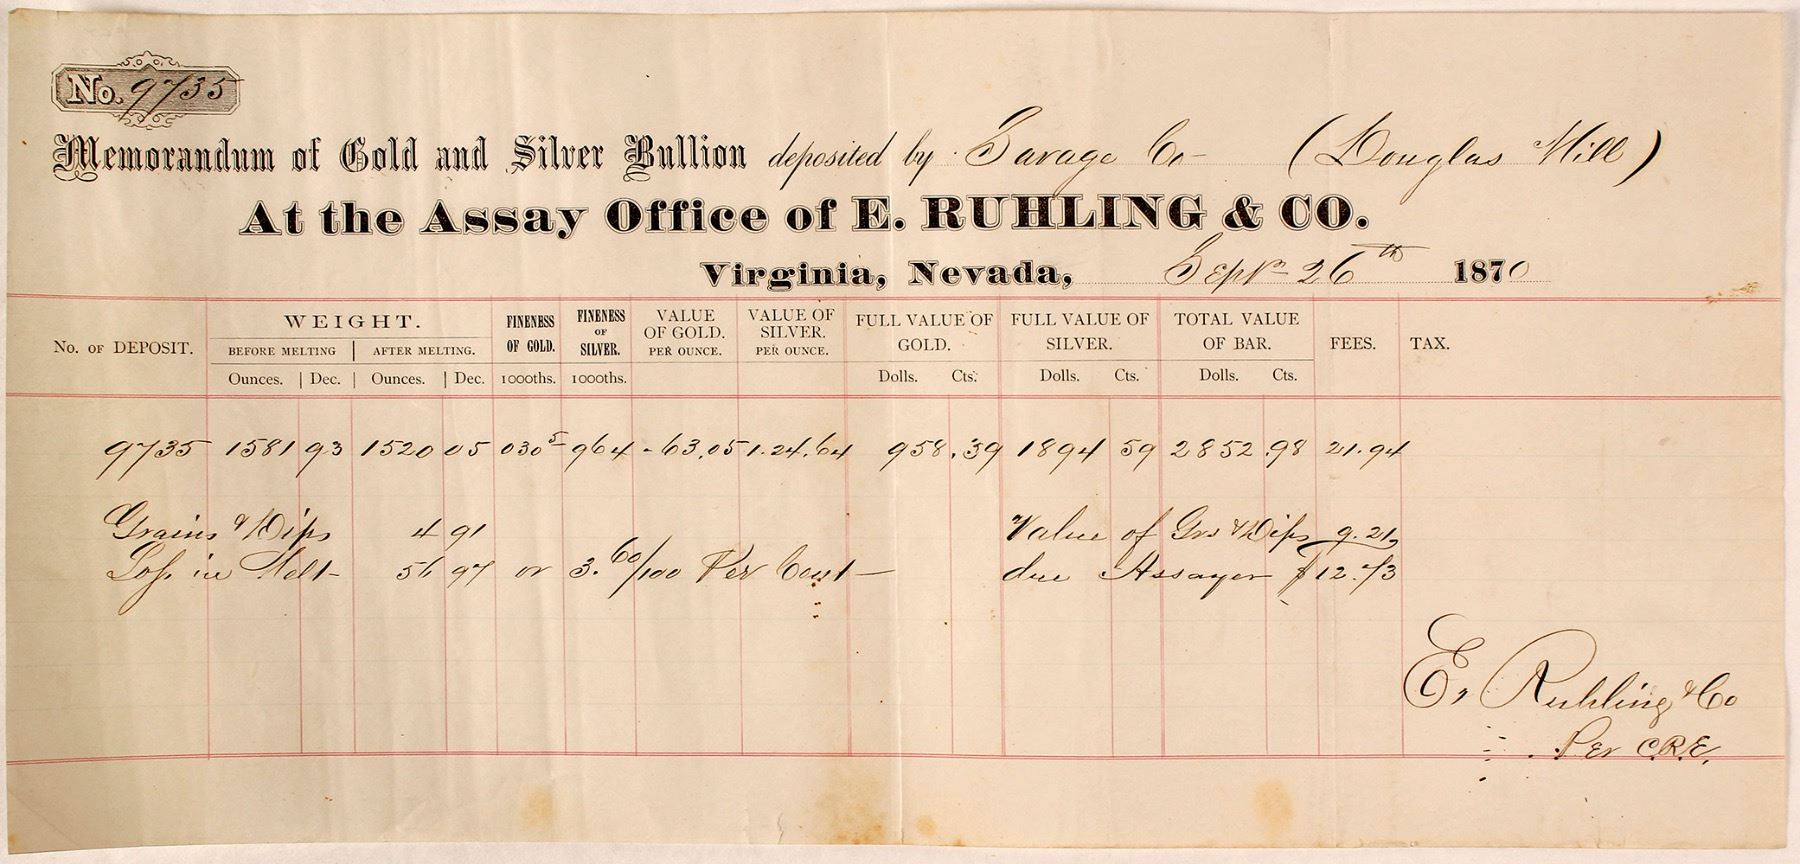 No. 9735
Memorandum of Gold and Silver Bullion deposited by Savage Co - (Douglas Mill)
At the Assay Office of E. RUHLING & CO.
Virginia, Nevada, Sept 26th 1870
No. OF DEPOSIT. WEIGHT. FINENESS OF GOLD. FINENESS OF SILVER. VALUE OF GOLD. PER OUNCE. VALUE OF SILVER. PER OUNCE. FULL VALUE OF GOLD. FULL VALUE OF SILVER. TOTAL VALUE OF BAR. FEES. TAX.
BEFORE MELTING AFTER MELTING.
Ounces. Dec. Ounces. Dec. 1000ths. 1000ths. Dolls. Cts. Dolls. Cts. Dolls. Cts.
9735 1581 93 1520 05 030 5 964 - 63.05 1.24.64 958.39 1894 59 2852.98 21.94
Grains & Dips 4 91 Value of Grs & Dips 9.21
Loss in Melt - 56 97 or 3.60/100 Per Cent - due Assayer $12.73
E. Ruhling & Co
Per C.R.E.